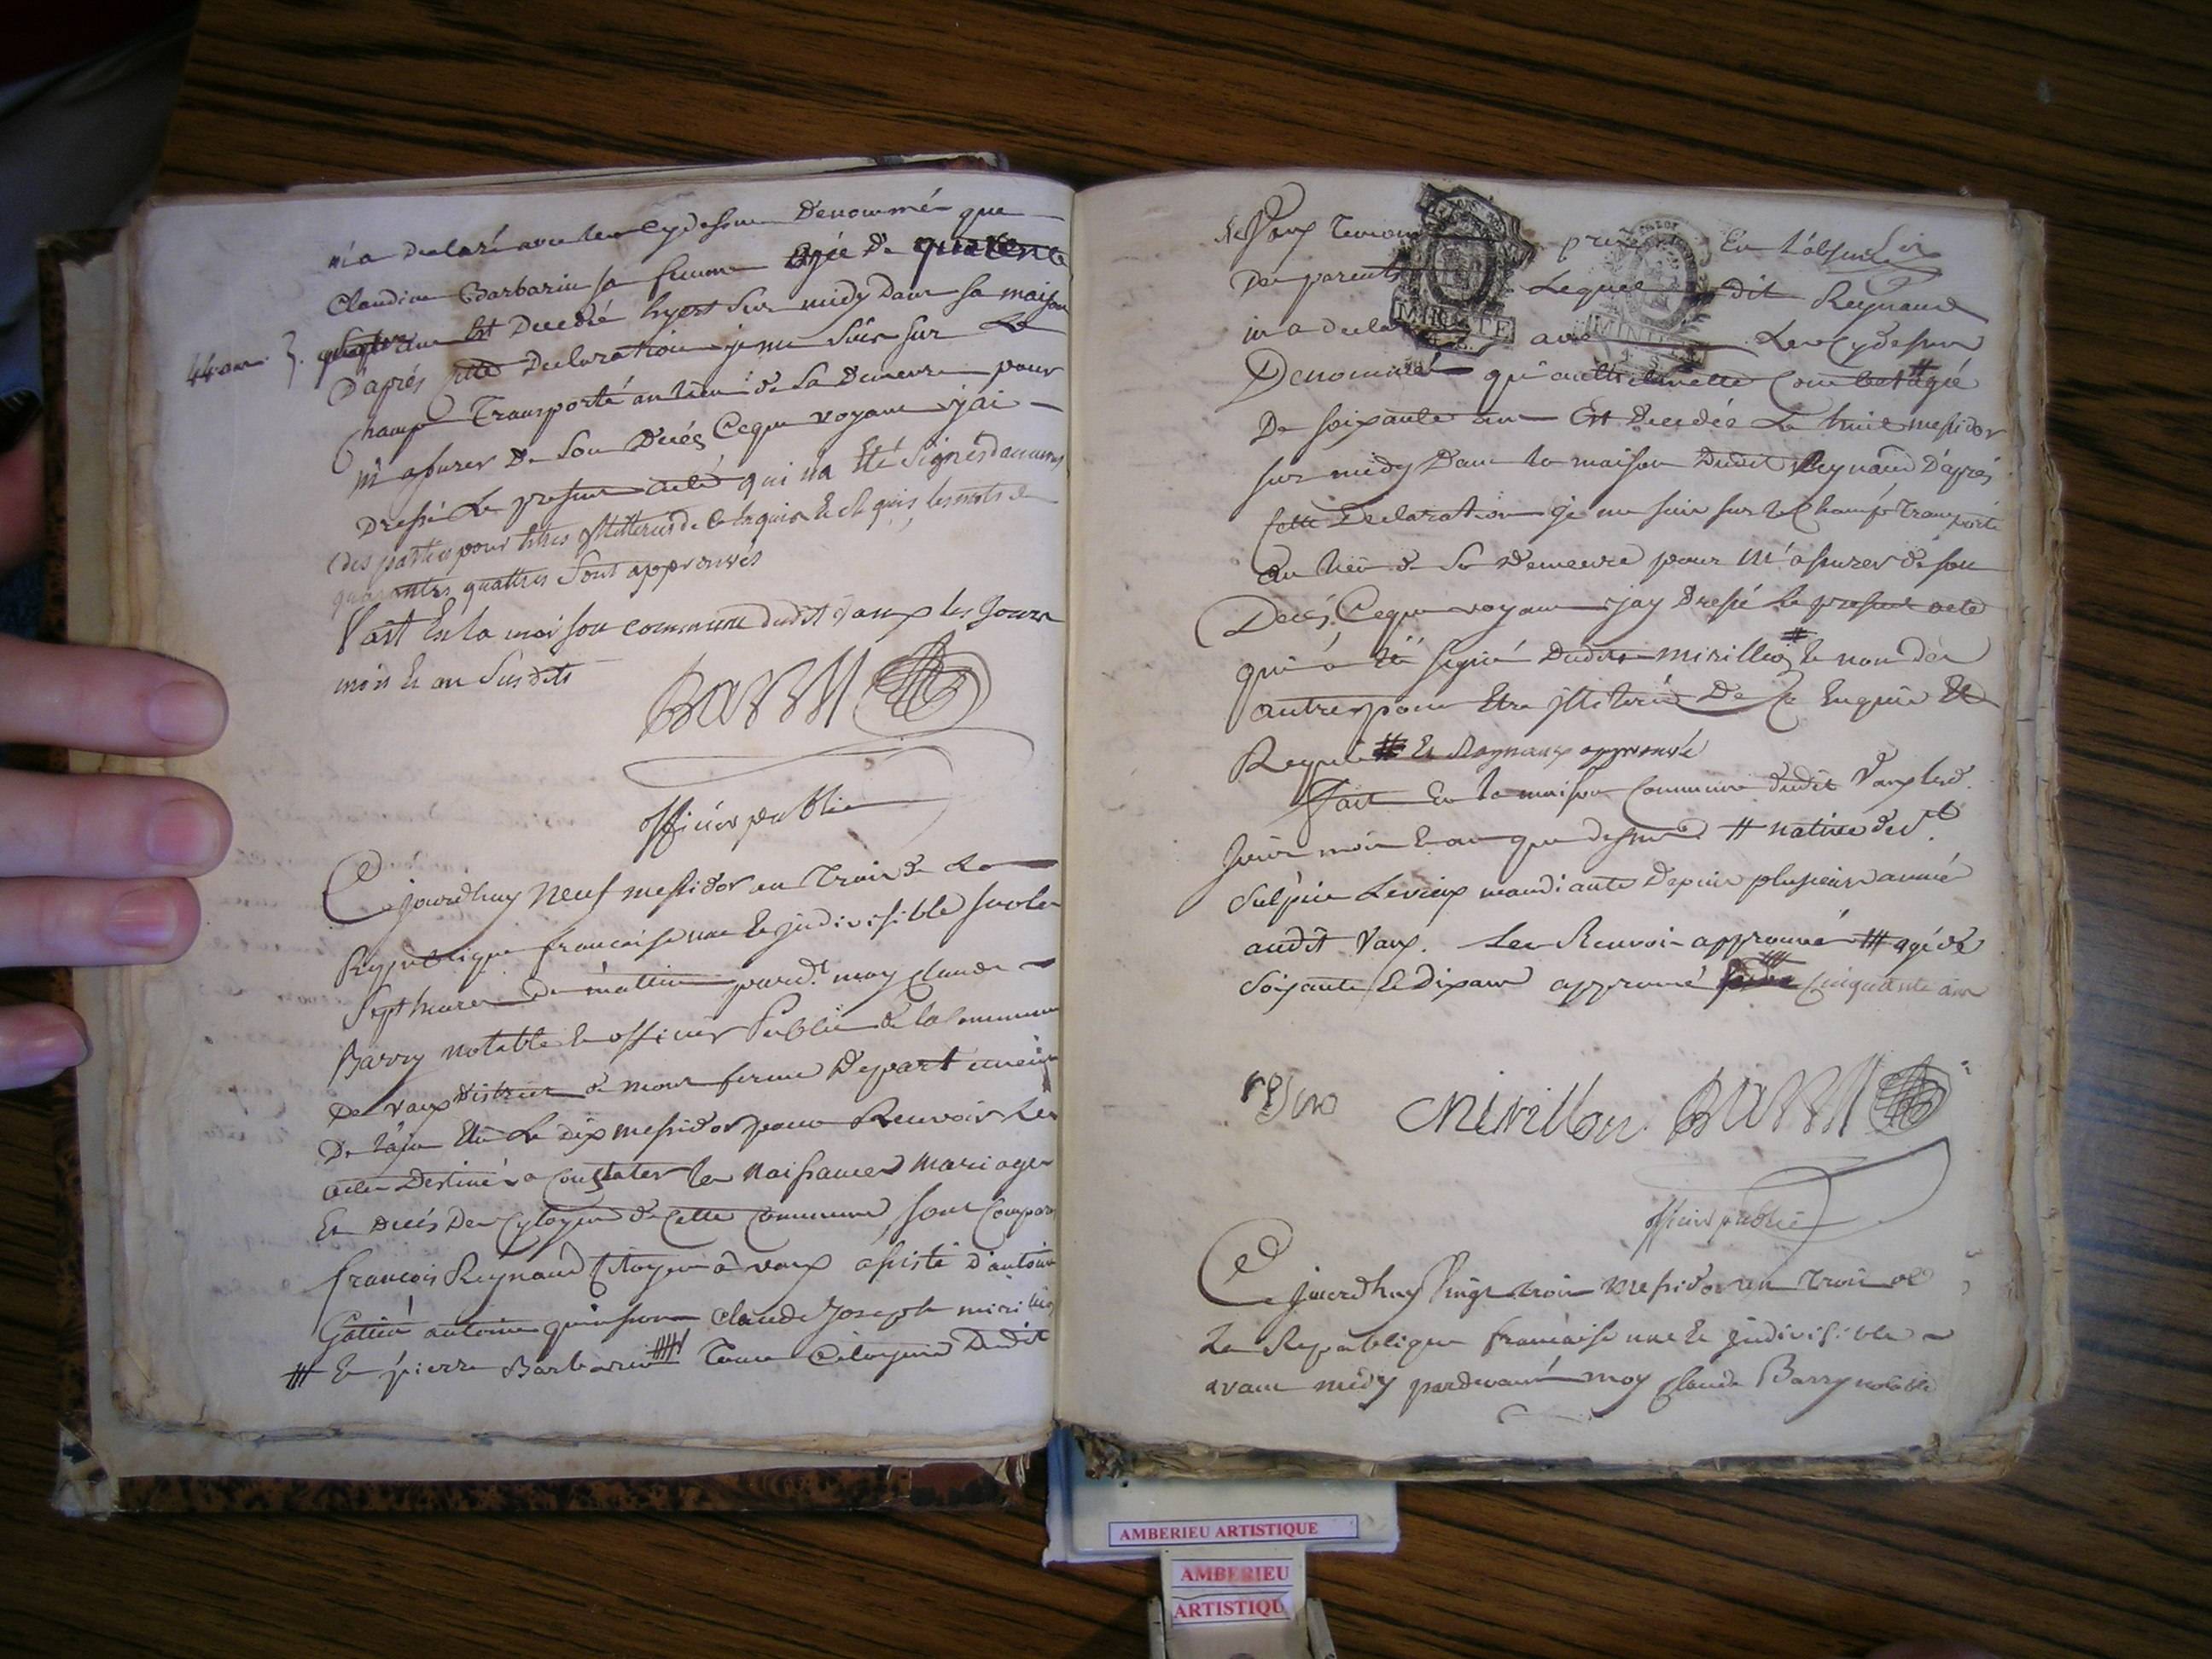 m'a declaré avec les cydessus Denommés que
Claudine Barbarin sa femme agée de quarente
44 ans quatre ans Est Decedé hyert Sur midy Dans sa maison
D'aprés cette Declaration je me suis sur Le
Champ Transporté au lieu de Sa Demeure pour
m'assurer De Son Décés Ceque voyant j'ai
Dressé Le present acte qui n'a été Signés d'aucunes
des parties pour êttres illitterés de ce enquis Et requis, les mots de
quarentes quattres Sont approuvés
Fait En la maison commune dudit Vaux les Jours
mois Et an Susdits
BARRY
officier public
Cejourdhuy Neuf messidor an Trois de La
Republique francoise une Et jndivisible sur les
Sept heures du mattin pard.t moy claude
Barry notable Et officier Public de la Commune
De vaux District de mont ferme Departement
De l'ain Elû Le dix messidor pour Recevoir Les
actes Destinés a Constater les Naissances Mariages
Et Décés Des Cytoyens de Cette Commune, sont Comparu
francois Reynaud Citoyen à vaux assisté d'antoine
Gattier antoine quinson claude Joseph mirillion
# Et pierre Barbarin Tous Citoyens Dudit
Vaux Temoins En l'absence
Des parents Lequel dit Reynaud
m'a declaré avec Les Cydessus
Denommés agée
De soixante ans Est Decedée Le huit messidor
sur midy Dans la maison Dudit Reynaud D'aprés
Cette Declaration je me suis sur Le Champ Transporté
Au lieu de Sa Demeure pour M'assurer de son
Decés. Ceque voyant jay Dressé Le present acte
qui à été signé Dudit mirillion # Et non des
autres pour Etre jlliterés De Ce Enquis Et
Requis # Et Reynaux approuvé
Fait En la maison Commune dudit Vaux les d.
Jours mois Et an que dessus # native de St
Sulpice Levieux mandiante Depuis plusieurs année
audit Vaux. Les Renvois approuvé # agée de
Soixante Et Dix ans approuvé Cinquante ans
Mirillon BARRY
officier public
Cejourdhuy Vingt trois Messidor an Trois de
La Republique francaise une Et jndivisible
avant midy pardevant moy Claude Barry notable
MINUTE
MINUTE
AMBERIEU ARTISTIQUE
AMBERIEU
ARTISTIQU